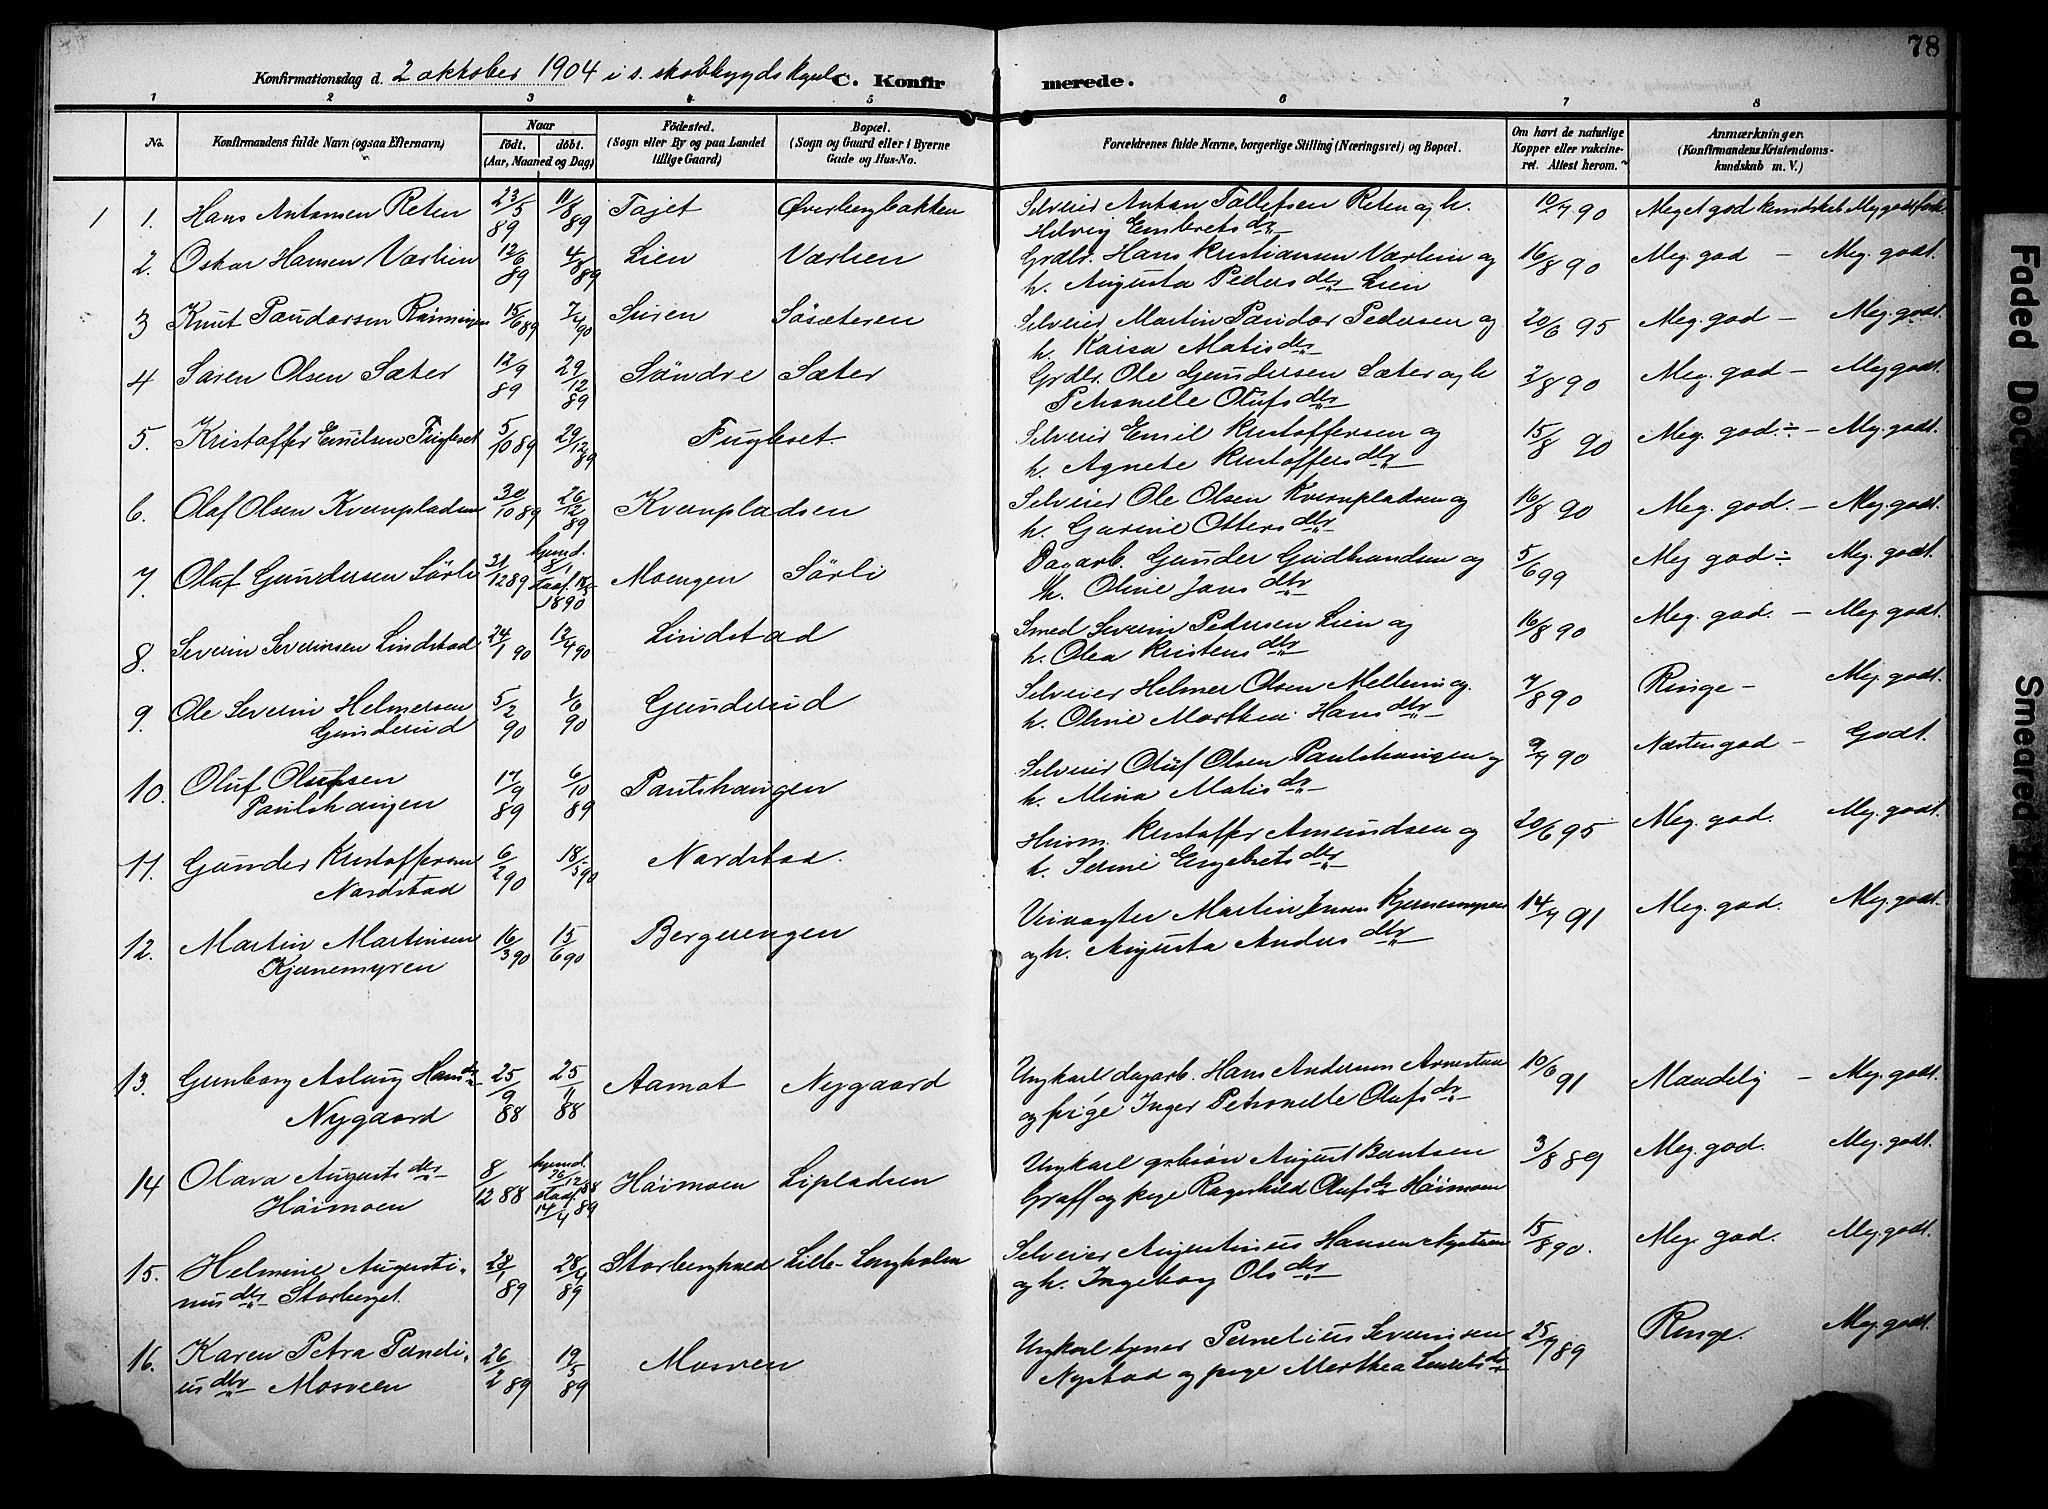 78
Konfirmationsdag d. 2 oktober 1904 i s. skobbygds C. Konfirmerede.
1 2 3 4 5 6 7 8
No. Konfirmandens fulde Navn (ogsaa Efternavn) Naar födt. döbt. (Aar, Maaned og Dag) Födested. (Sogn eller By og paa Landet tillige Gaard) Bopæl. (Sogn og Gaard eller i Byerne Gade og Hus-No. Forældrenes fulde Navne, borgerlige Stilling (Næringsvei) og Bopæl. Om havt de naturlige Kopper eller vakcineret. Attest herom. Anmærkninger. (Konfirmandens Kristendomskundskab m. V.)
1 1. Hans Antonsen Reten 23/5 89 11/8 89 Tajet Øverbergbakken Selveier Anton Tollefsen Reten og h. 10/7 90 Meget god kundskab Meg. godt
Helvig Embretsdtr
2. Oskar Hansen Værlien 12/6 89 4/8 89 Lien Værlien Grdbr. Hans Kristiansen Værlien og 16/8 90 Meg. god - Meg. godt.
h. Augusta Pedersdtr Lien
3 Knut 15/6 89 7/4 90 Sæteren Selveier Martin Pandor Pedersen og 20/6 95 Meg. god - Meg. godt.
h. Kaisa Matisdtr
4 Søren Olsen Sæter 12/9 89 29/12 89 Søndre Sæter Grdbr. Ole Gundersen Sæter og h 2/8 90 Meg. god - Meg godt.
Petronelle Olufsdtr
5. Kristoffer Emilsen Fugleset 5/10 89 29/12 89 Fugleset Selveier Emil Kristoffersen og 15/8 90 Meg. god ÷ - Meg. godt.
h. Agnete Kristoffersdtr
6. Olaf Olsen Kvernpladsen 30/10 89 26/12 89 Kvernpladsen Selveier Ole Olsen Kvernpladsen og 16/8 90 Meg. god. - Meg. godt.
h. Gurine Ottersdtr
7. Oluf Gundersen Sørli 31/12 89 hjemd. 1890 Moengen Sørli Dagarb. Gunder Gudbrandsen og 5/6 99 Meg god ÷ Meg. godt.
h. Oline Jansdtr
8. Severin Severinsen Lindstad 24/1 90 13/4 90 Lindstad Smed Severin Pedersen Lien og 16/8 90 Meg. god. - Meg. godt.
h. Olea Kristensdtr
9. Ole Severin Helmersen Gunderud 5/2 90 1/6 90 Gunderud Selveier Helmer Olsen Mellem og 7/8 90 Ringe - Meg. godt.
h. Oline Marthea Hansdtr
10. Oluf Olufsen Paulshaugen 17/9 89 6/10 89 Paulshaugen Selveier Oluf Olsen Paulshaugen og 9/7 90 Næsten god - Godt.
h. Mina Matisdtr
11. Gunder Kristoffersen Nordstad 6/2 90 18/5 90 Nordstad. Husm. Kristoffer Amundsen og 20/6 95 Meg. god. Meg. godt.
h. Serine Engebretsdtr
12. Martin Martinsen Kjernemyren 16/3 90 15/6 90 Bergerengen Veivogter Martin Jensen Kjernemyren 14/7 91 Meg. god. Meg. godt.
og h. Augusta Andersdtr
13. Gunborg Aslaug Hansdtr Nygaard 25/9 88 25/11 88 Aamot Nygaard Ungkarl dagarb. Hans Andersen Arnestad 10/6 91 Maadelig - Meg. godt.
og pige Inger Petronelle Olufsdtr
14 Olava Augustsdtr Høimoen 8/12 88 hjemd. 26/12 88 14/4 89 Høimoen Lipladsen Ungkarl grbsøn August Bentsen 3/8 89 Meg. god. Meg. godt.
Graff og pige Ragnhild Olufsdtr Høimoen
15. Helmine Augustinusdtr Storberget 23/1 89 28/4 89 Lille-Longholm Selveier Augustinius Hansen Nystuen 15/8 90. Meg. god. Meg. godt.
og h. Ingeborg Olsdtr
16. Karen Petra Perneliusdtr Mosveen 26/2 89 19/5 89 Mosveen Ungkarl Pernelius Severinsen 25/7 89 Ringe. Meg. godt.
Nystad og pige Marthea Lauritsdtr
Faded Document
Smeared